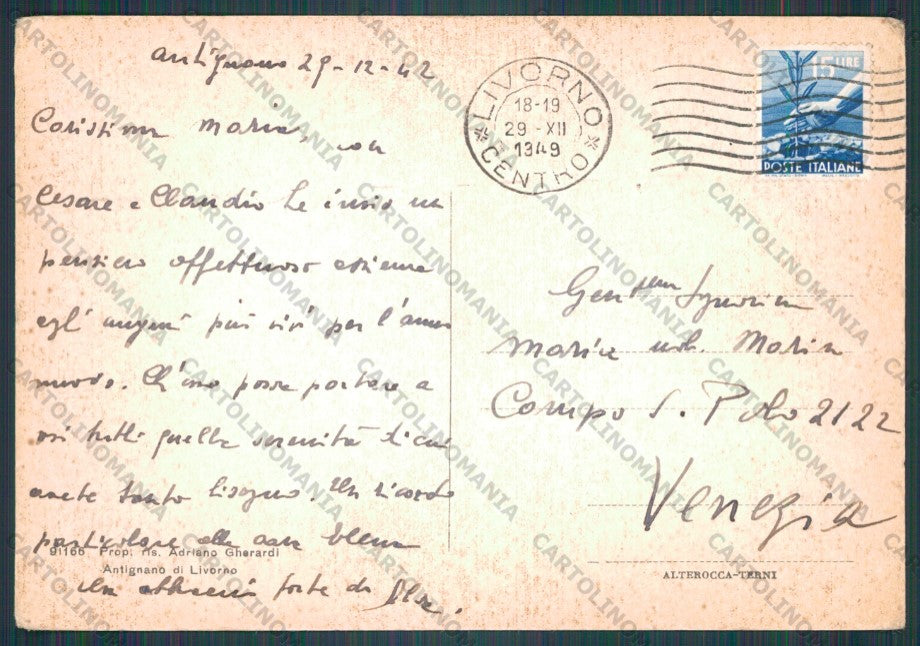 Antignano 29-12-42
Carissima Maria
con
Cesare e Claudio Le invio un
pensiero affettuoso assieme
agl' auguri più vivi per l'anno
nuovo. Ch'esso possa portare a
voi tutti quella serenità di cui
avete tanto bisogno. Un ricordo
particolare alla cara
Un abbraccio forte da
91166 Prop. ris. Adriano Gherardi
Antignano di Livorno
LIVORNO
18-19
29-XII
1949
CENTRO
15 LIRE
POSTE ITALIANE
Gent.ma Signorina
Maria nob. Morin
Campo S. Polo 2122
Venezia
ALTEROCCA-TERNI
CARTOLINOMANIA